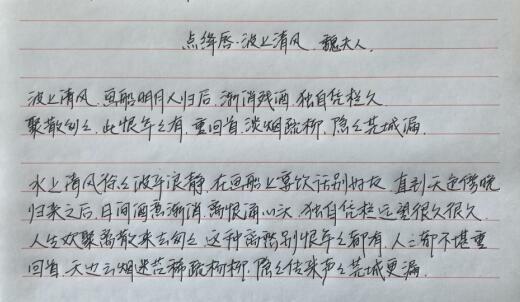 点绛唇·波上清风 魏夫人
波上清风,画船明月人归后,渐消残酒,独自凭栏久
聚散匆匆,此恨年年有,重回首,淡烟疏柳,隐隐芜城漏.
水上清风徐徐波平浪静,在画船上宴饮话别好友,直到天色傍晚
归来之后,日间酒意渐消,离恨涌心头,独自凭栏远望很久很久.
人生欢聚离散来去匆匆,这种离愁别恨年年都有,人人都不堪重
回首,天边云烟迷茫稀疏杨柳,隐隐传来声声芜城更漏.